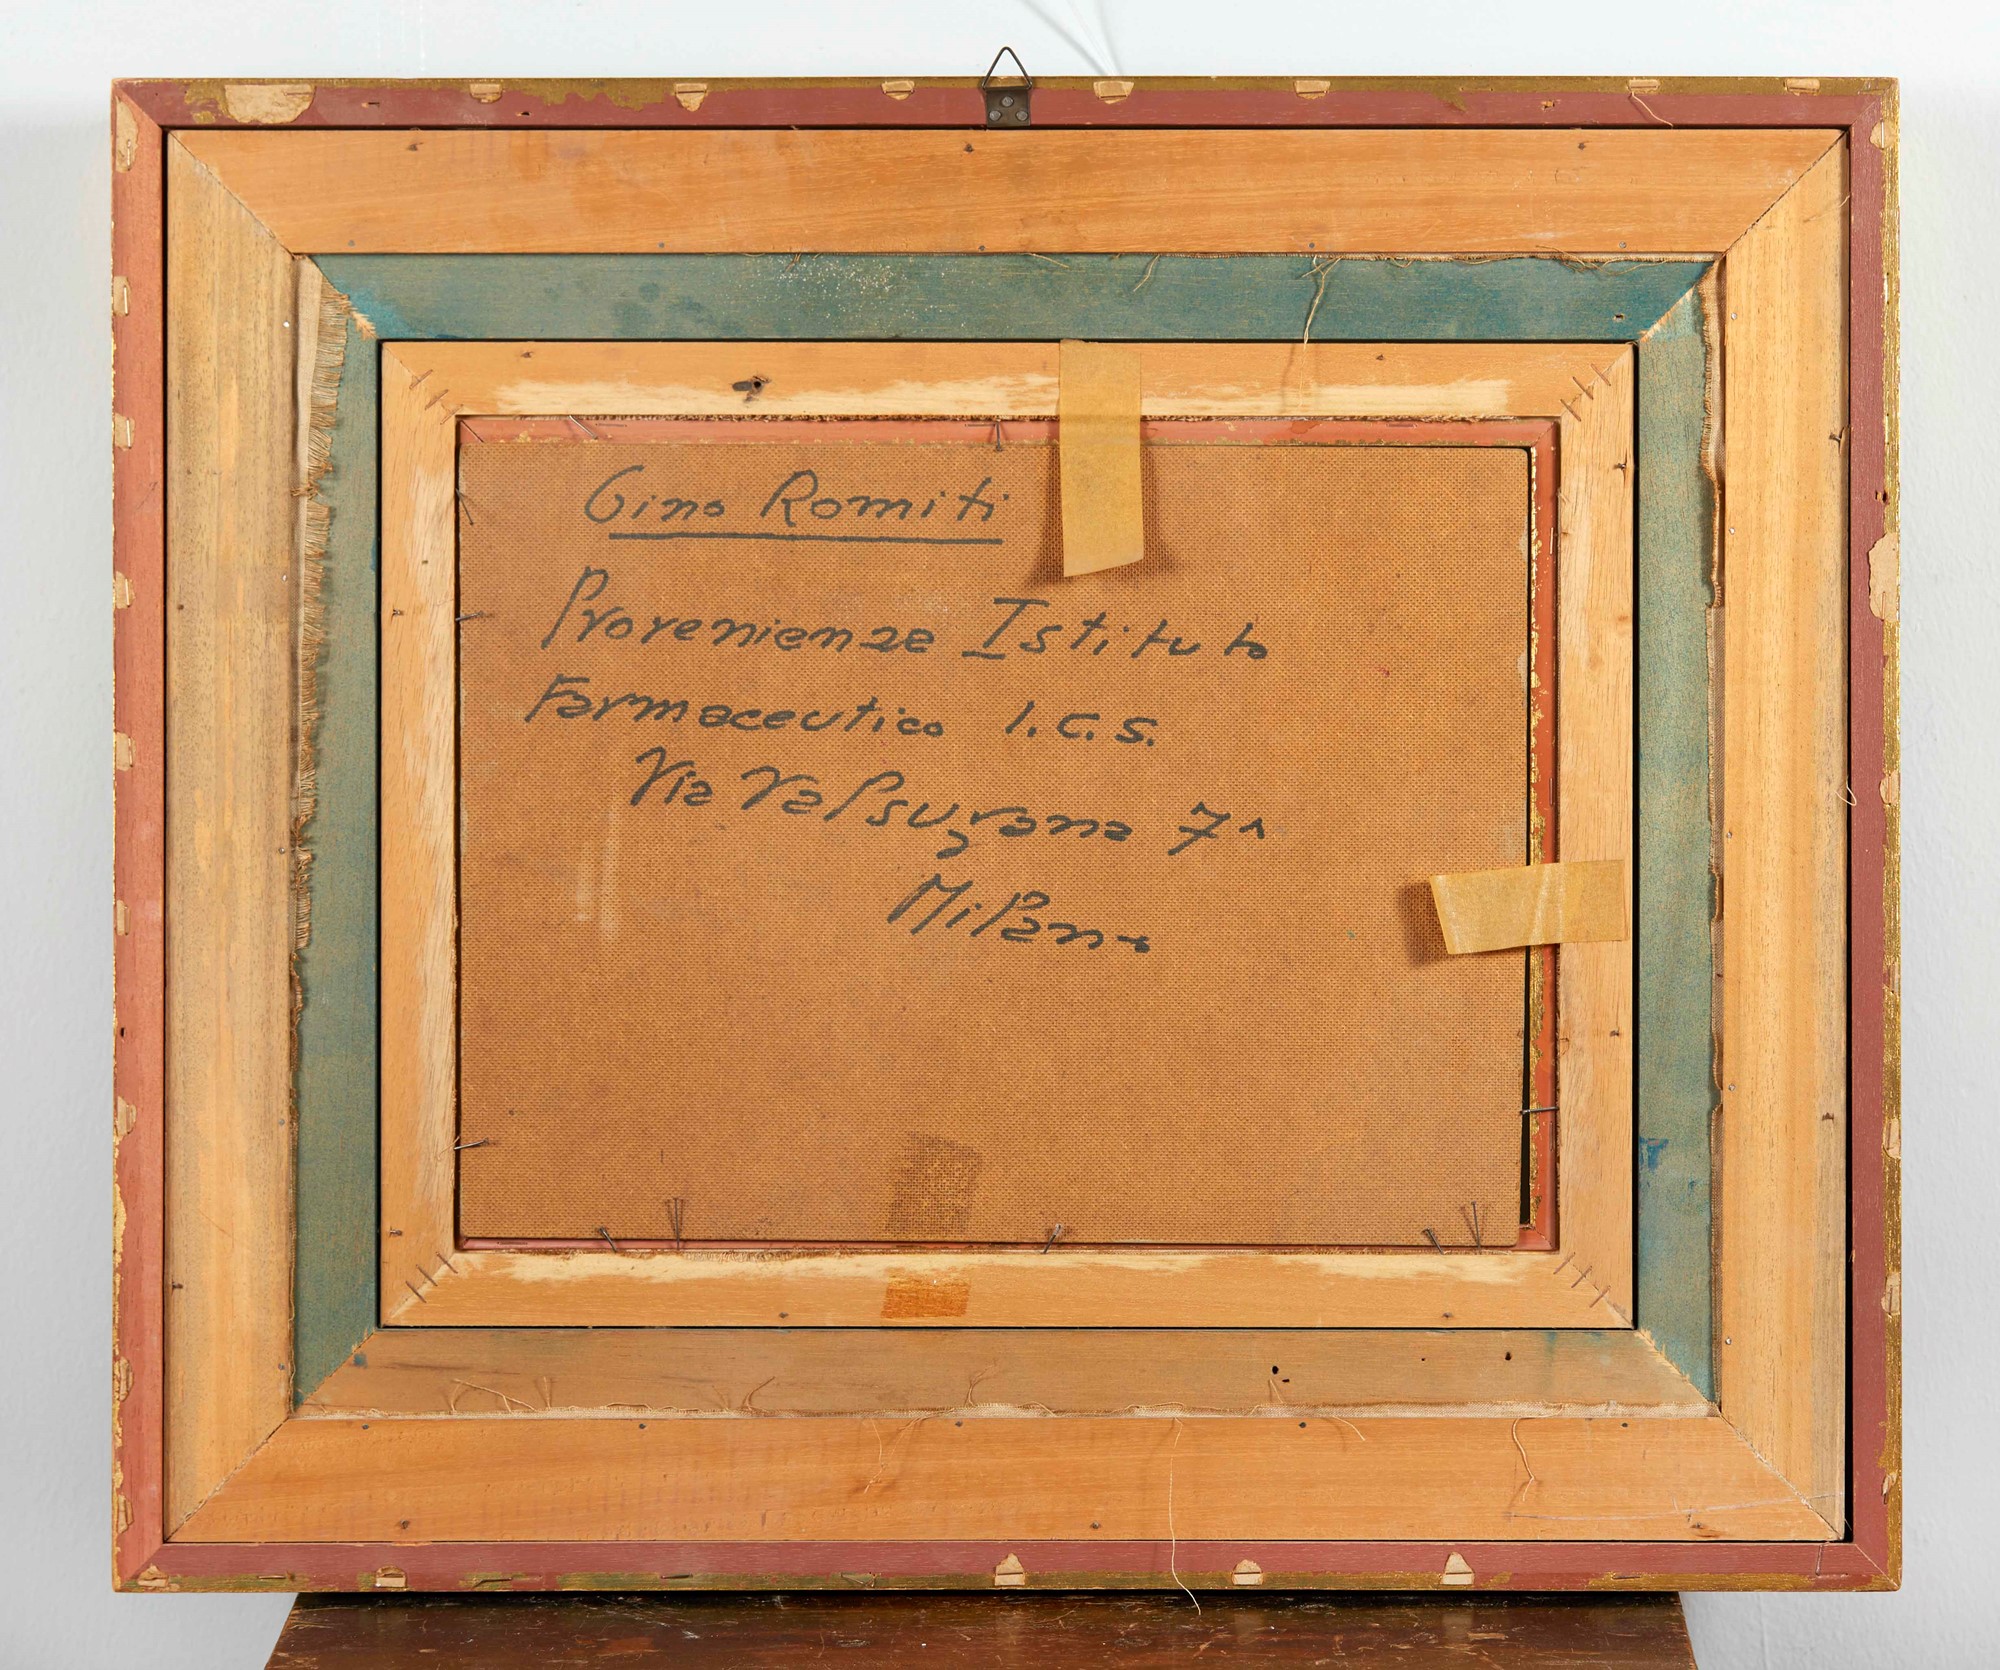 Gino Romiti
Provenienza Istituto
Farmaceutico I.C.S.
Via Valsugana 7^
Milano